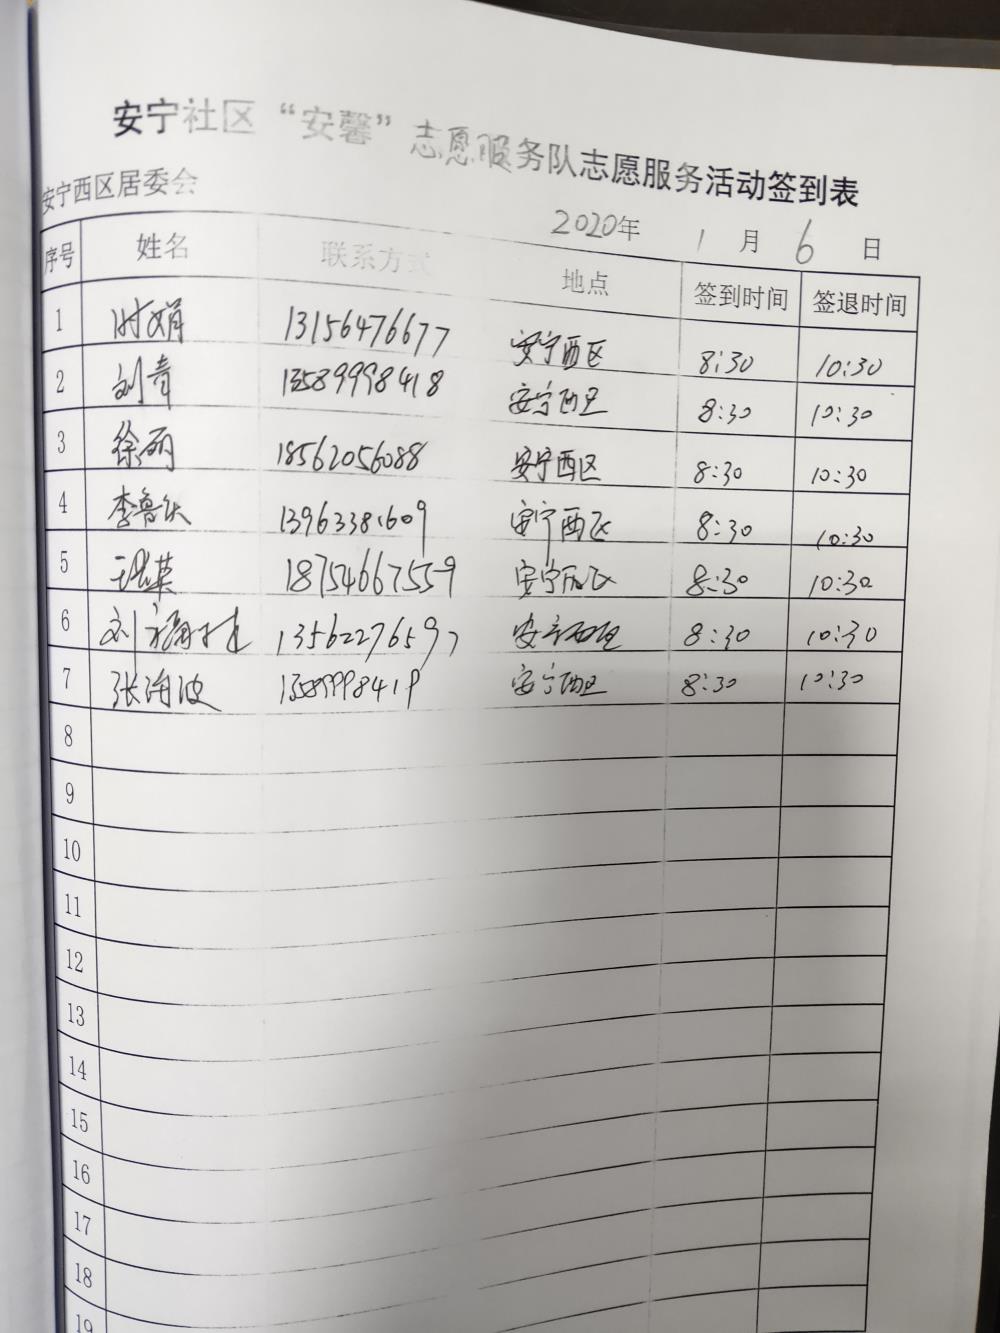 安宁社区“安馨”志愿服务队志愿服务活动签到表
安宁西区居委会
2020年 1 月 6 日
序号 姓名 联系方式 地点 签到时间 签退时间
1 时娟 13156476677 安宁西区 8:30 10:30
2 刘青 13589998418 安宁西区 8:30 10:30
3 徐丽 18562056088 安宁西区 8:30 10:30
4 李鲁 13963381609 安宁西区 8:30 10:30
5 英 18754667559 安宁西区 8:30 10:30
6 刘福 13562276597 安宁西区 8:30 10:30
7 张海波 13589998419 安宁西区 8:30 10:30
8
9
10
11
12
13
14
15
16
17
18
19